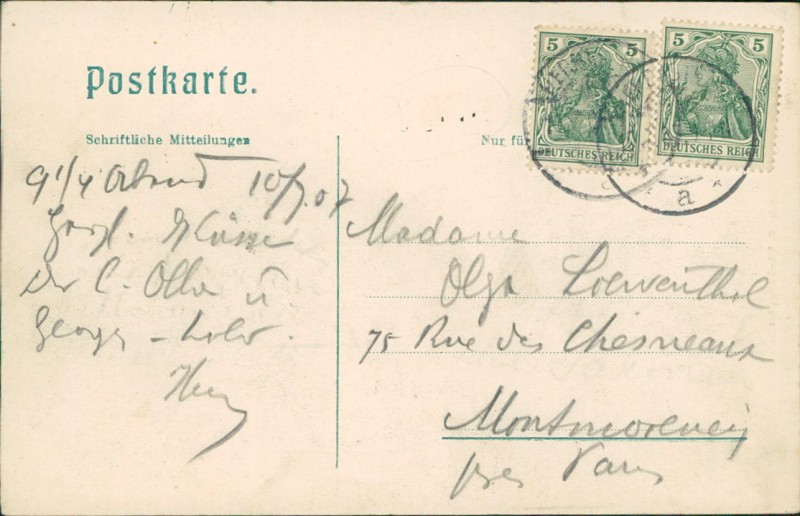 Postkarte.
5 5
DEUTSCHES REICH
5 5
DEUTSCHES REICH
a
Schriftliche Mitteilungen
Nur fü
9 1/4 Abend 10/7.07
Küsse
Olla u
Georges
Madame
Olga Loewenthal
75 Rue des Chesneaux
Montmorency
près Paris